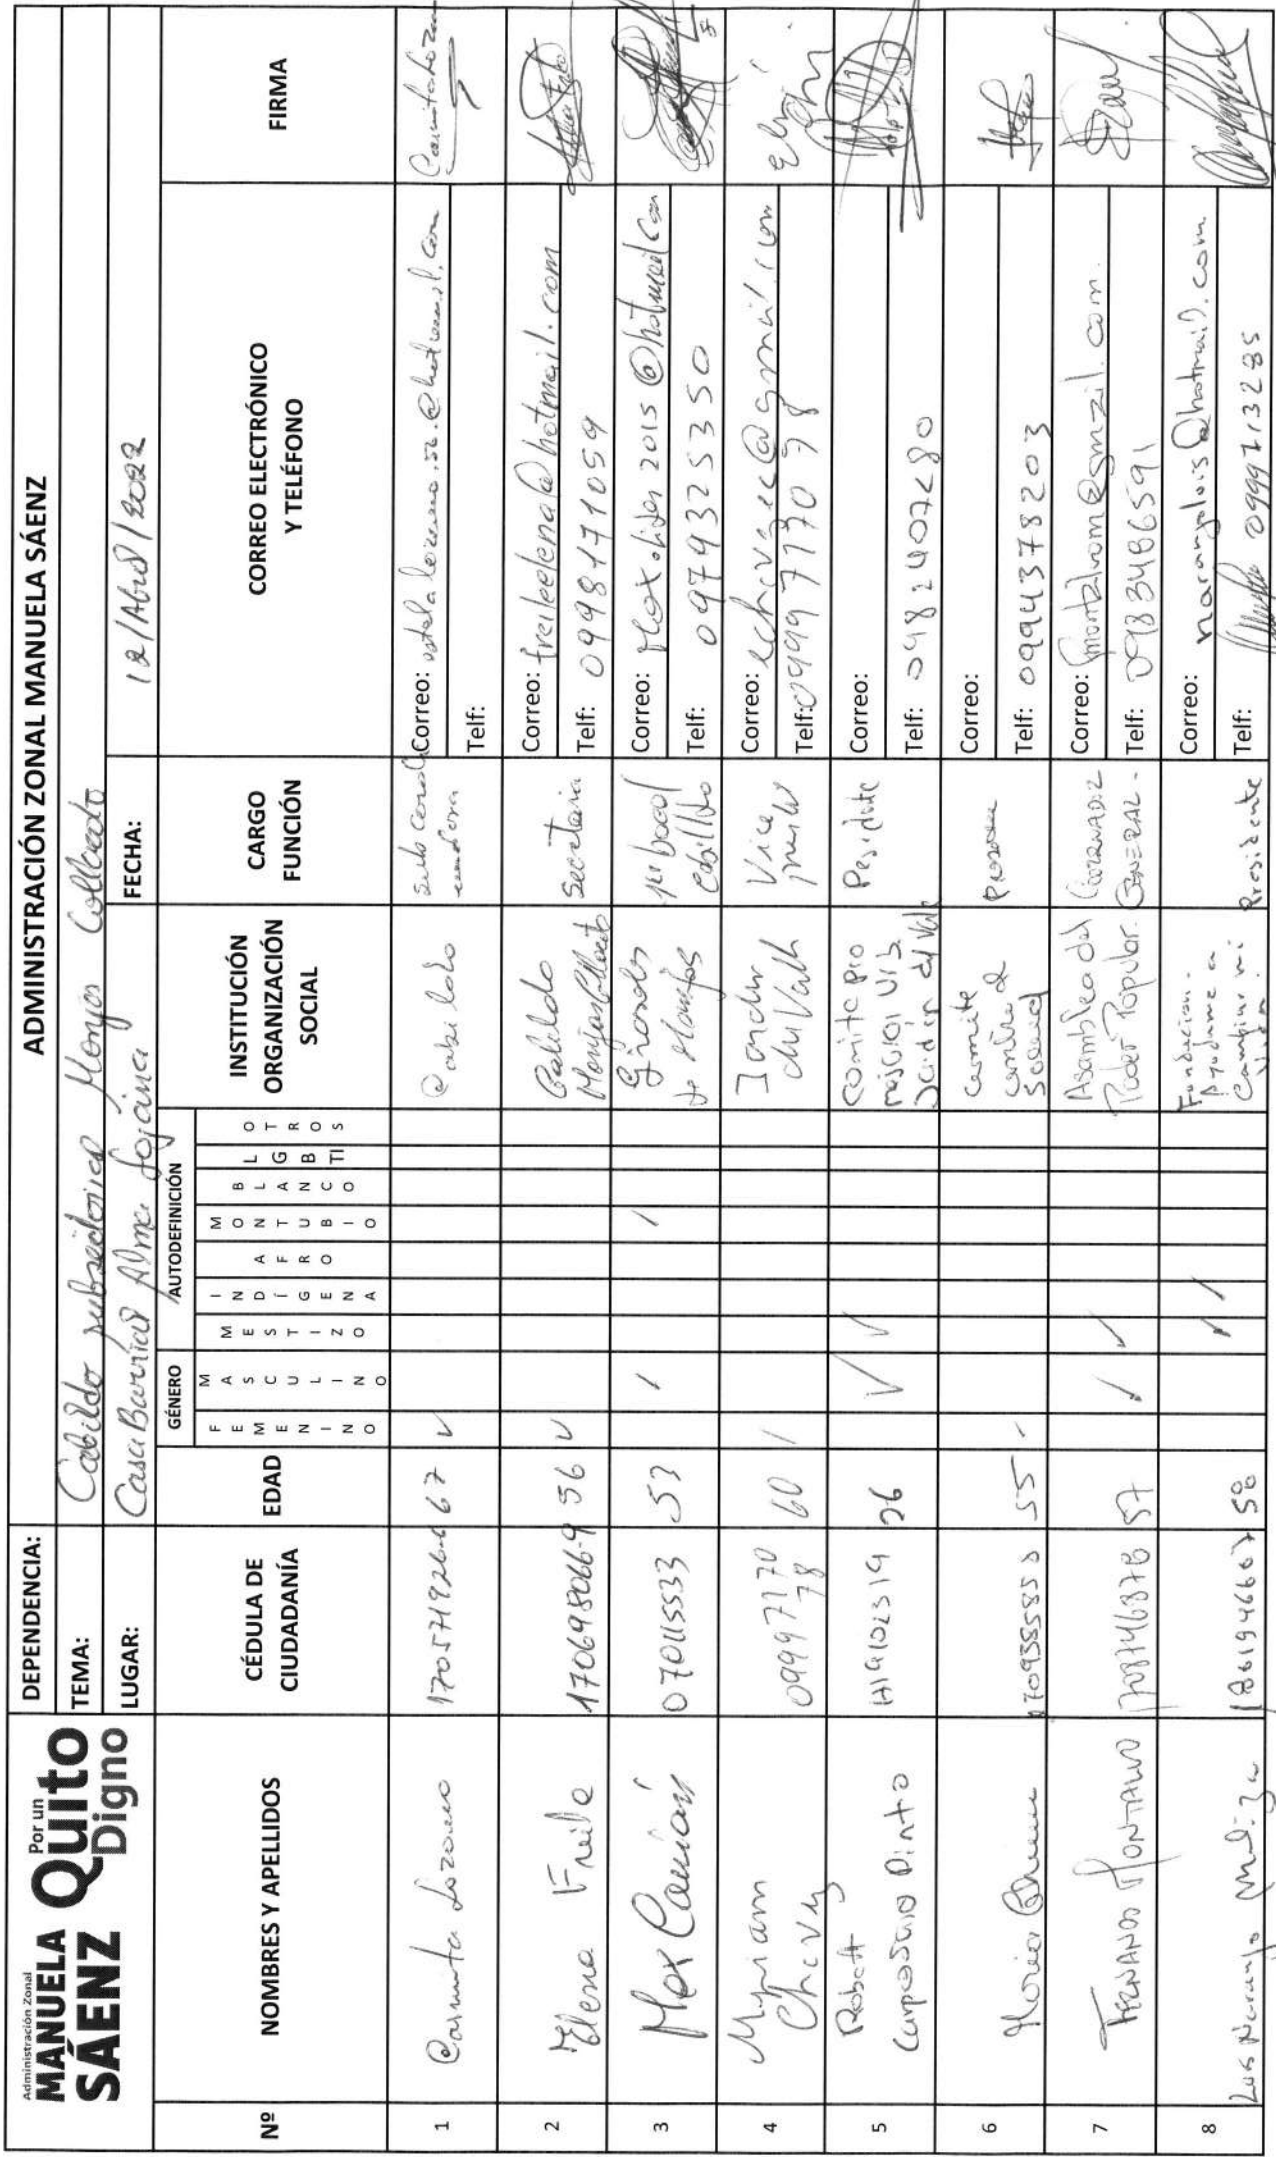 Administración Zonal
MANUELA
SÁENZ
Por un
Quito
Digno
DEPENDENCIA: ADMINISTRACIÓN ZONAL MANUELA SÁENZ
TEMA: Cabildo subsectorial Monjas Collacoto
LUGAR: Casa Barrial Alma Lojana FECHA: 12/Abril/2022
Nº
NOMBRES Y APELLIDOS
CÉDULA DE
CIUDADANÍA
EDAD
GÉNERO
FEMENINO
MASCULINO
AUTODEFINICIÓN
MESTIZO
INDÍGENA
AFRO
MONTUBIO
BLANCO
LGBTI
OTROS
INSTITUCIÓN
ORGANIZACIÓN
SOCIAL
CARGO
FUNCIÓN
CORREO ELECTRÓNICO
Y TELÉFONO
FIRMA
1 Carmita Lozano 67 ✓ Correo:
Telf:
2 Elena Freile 170698066-9 56 ✓ Cabildo
Monjas Collacoto
Secretaria
Correo: freileelena@hotmail.com
Telf: 0998171059
3 Max 53 / /
Girasoles
de Monjas
Correo: 2015@hotmail.com
Telf: 0979325350
4 Myriam
Chavez
09997170
78
60 /
Vice
Correo: echavezc@gmail.com
Telf: 0999717078
5 Robert
Campoverde Pinto
26 ✓ ✓
Comite pro
mejoras Urb.
Jardin del Valle
Presidente
Correo:
Telf: 0982407280
6 Maria 55 /
Comite
Centro de
Salud
Correo:
Telf: 0994378203
7 FERNANDO MONTALVO 57 / ✓
Asamblea del
Poder Popular.
COORDINADOR
GENERAL.
Correo: fmontalvom@gmail.com.
Telf: 0983486591
8 Luis Naranjo 1801946667 58 ✓ /
Fundacion
Ayudame a
Cambiar mi
Vida
Presidente
Correo: naranjoluis@hotmail.com
Telf: 0999713285